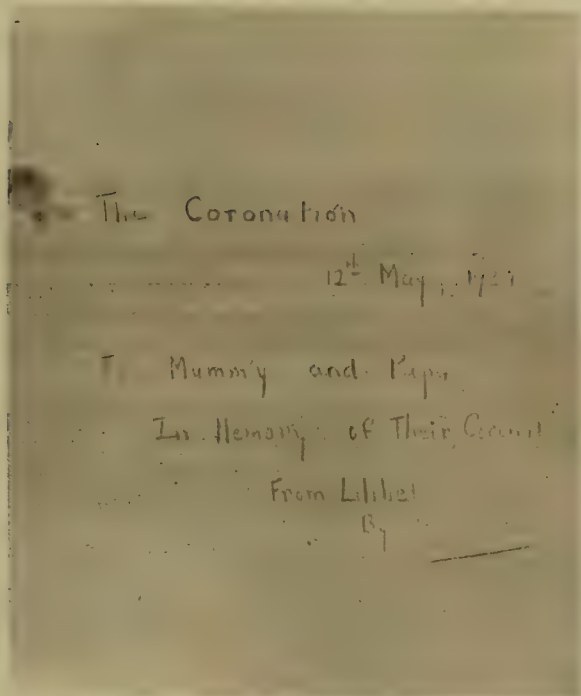 The Coronation
12th May,
To Mummy and Papa
In Memory of Their
From Lilibet
By